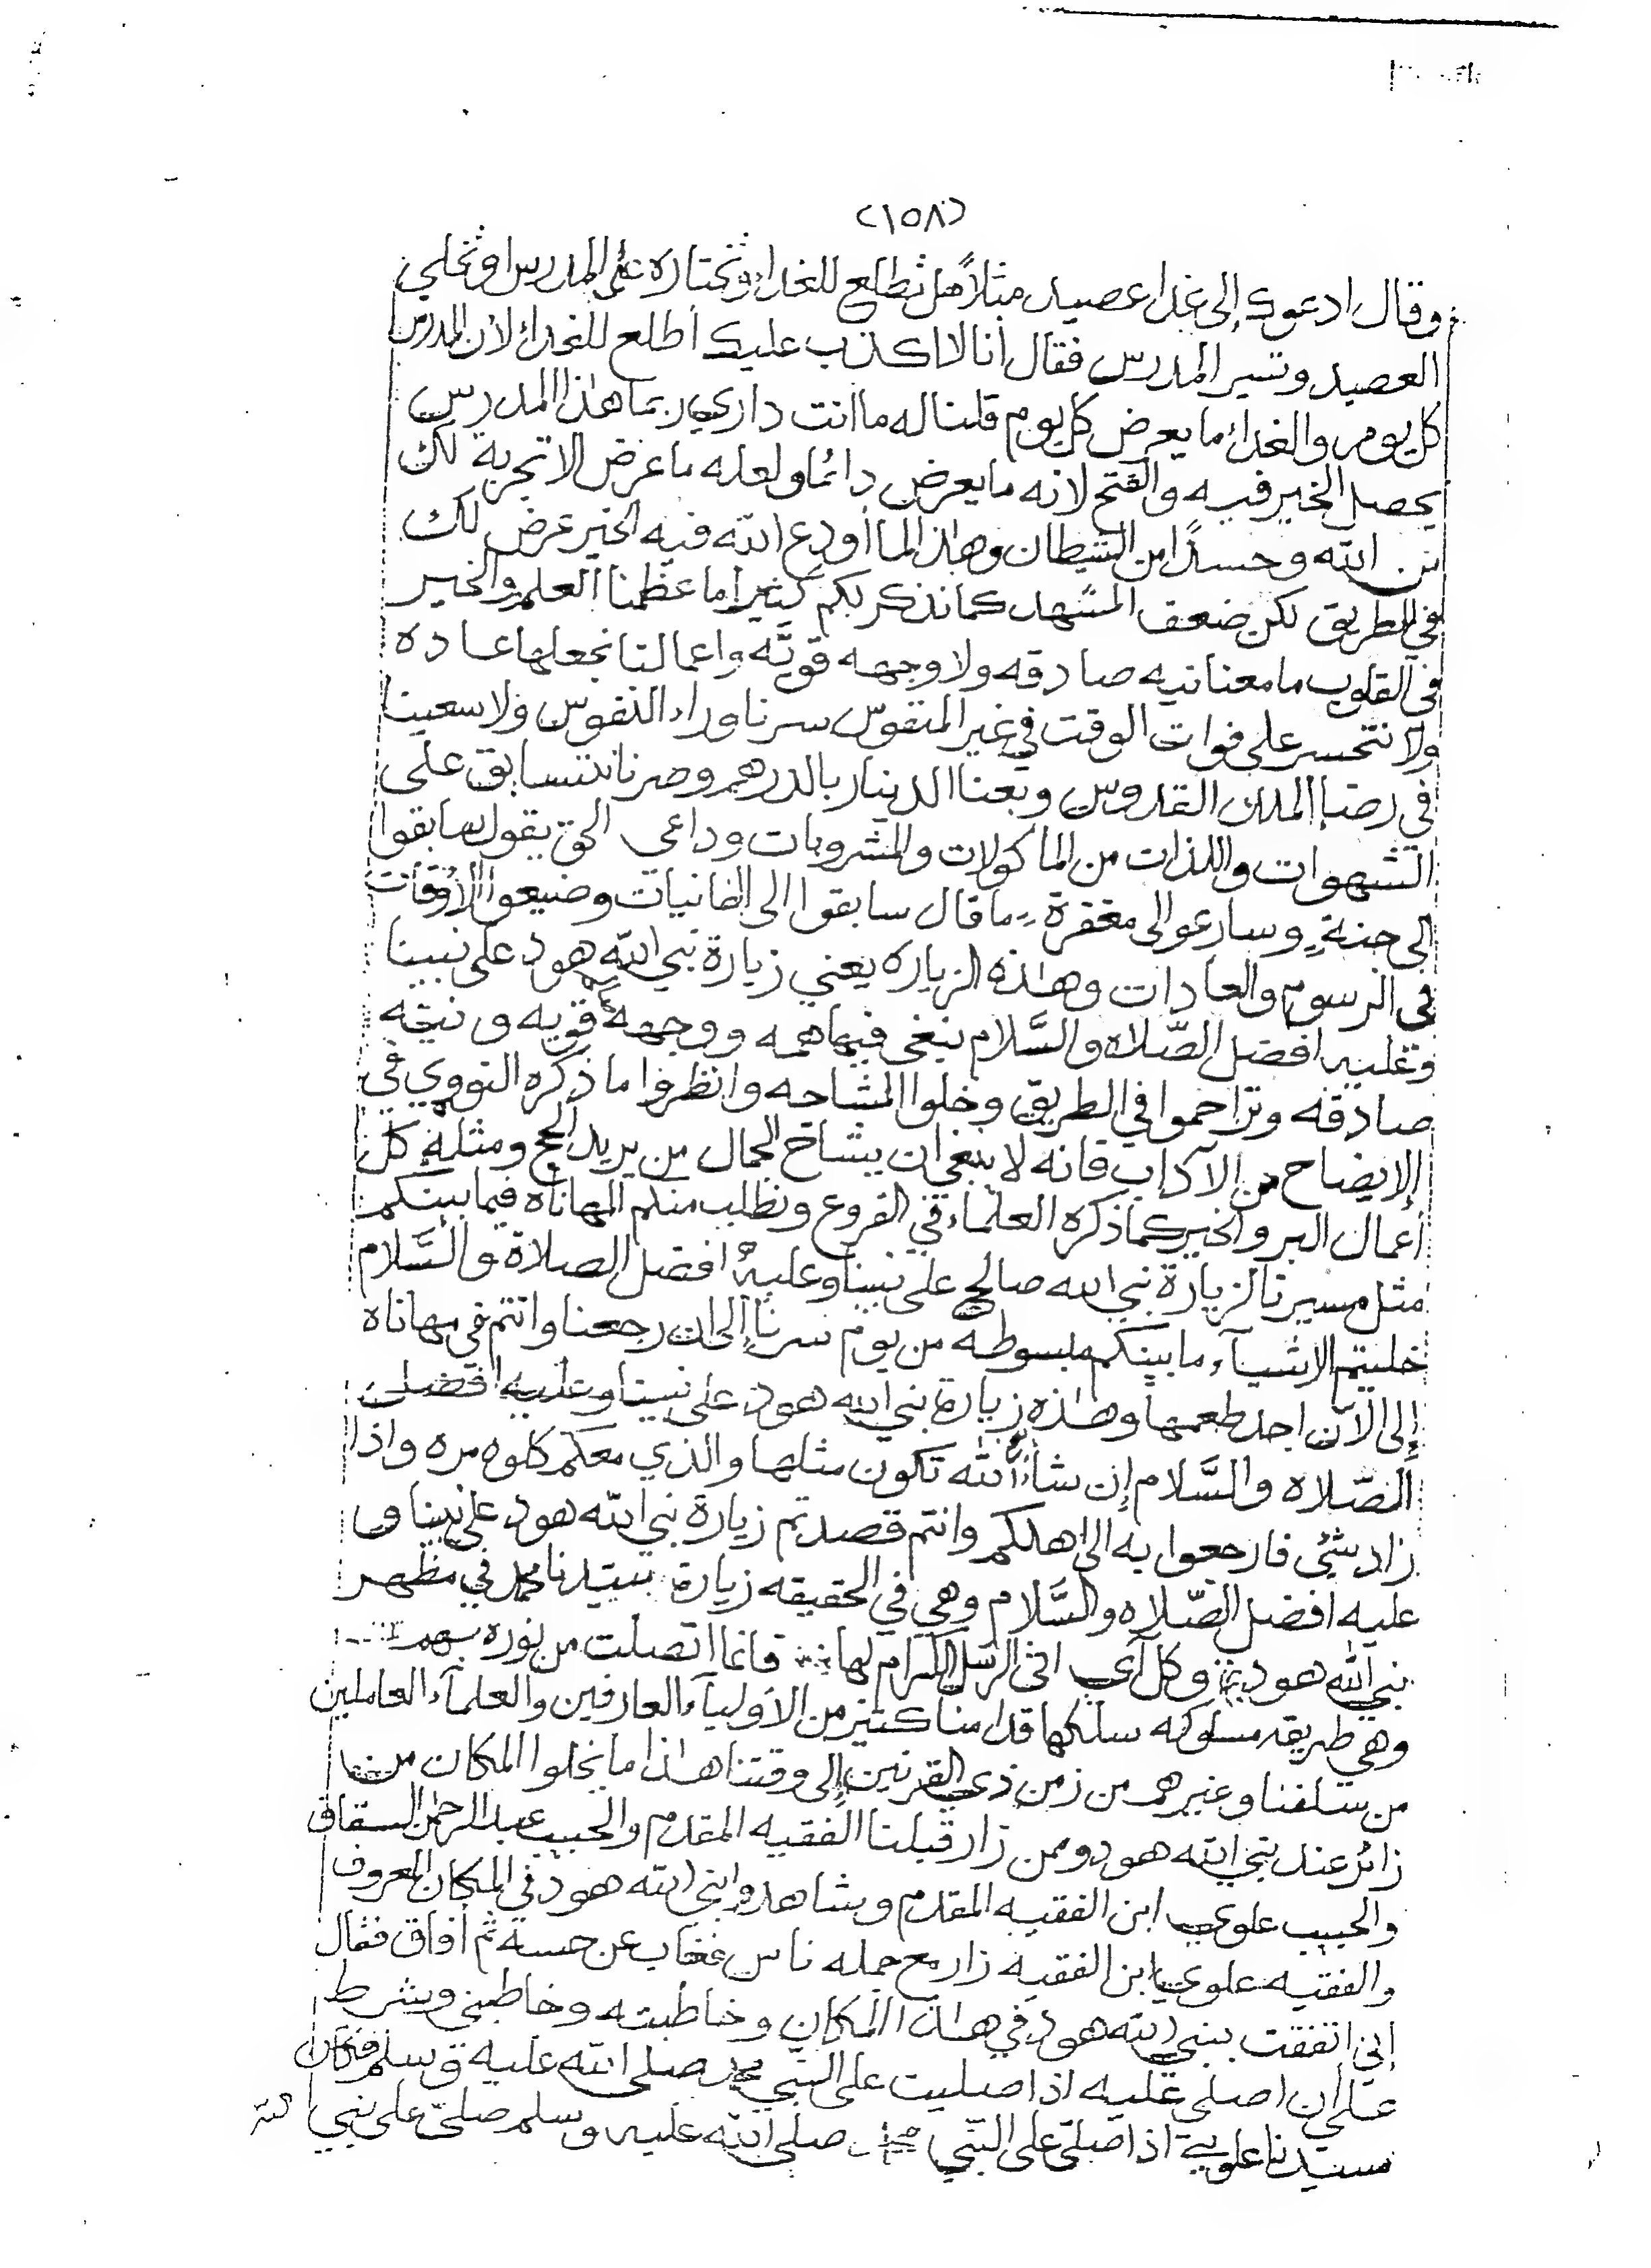 (١٥٨)
وقال ادعوك إلى غداء عصيد مثلاً هل تطلع للغداء وتختاره على المدرس او تخلي
العصيد وتسير المدرس فقال أنا لا اكذب عليك أطلع للغداء لأن المدرس
كل يوم والغداء ما يعرض كل يوم قلنا له ما انت داري ربما هذا المدرس
يحصل الخير فيه والفتح لانه ما يعرض دائماً ولعله ما عرض الا تجربة لك
من الله وحسداً من الشيطان وهذا لما أودع الله فيه الخير عرض لك
في الطريق لكن ضعف المشهد كما نذكر بكم كثيراً ما عظمنا العلم والخير
في القلوب ما معنا نيه صادقه ولا وجهه قويّه واعمالنا نجعلها عاده
ولا نتحسر على فوات الوقت في غير المنقوس سرنا وراء النفوس ولا سعينا
في رضا الملك القدوس وبعنا الدينار بالدرهم وصرنا نتسابق على
الشهوات واللذات من المأكولات والمشروبات وداعي الحق يقول سابقوا
الى جنةٍ وسارعو الى مغفرة ما قال سابقوا الى الفانيات وضيعوا الأوقات
في الرسوم والعادات وهذه الزياره يعني زيارة نبي الله هود على نبينا
وعليه افضل الصّلاه والسَّلام نبغى فيها همه ووجهة قويه ونيّه
صادقه وتراحموا في الطريق وخلوا المشاحه وانظروا ما ذكره النووي في
الإيضاح من الآداب فانه لا ينبغي ان يشاح الجمال من يريد الحج ومثله كل
أعمال البر والخير كما ذكره العلماء في الفروع ونطلب منكم المهاناه فيما بينكم
مثل مسيرنا لزيارة نبي الله صالح على نبينا وعليه افضل الصلاة والسَّلام
خليتم الاشيآء ما بينكم مبسوطه من يوم سرنا إلى ان رجعنا وانتم في مهاناه
إلى الآن اجد طعمها وهذه زيارة نبي الله هود على نبينا وعليه افضل
الصّلاه والسَّلام إن شاء الله تكون مثلها والذي معكم كلوه مره واذا
زاد شيء فارجعوا به الى اهلكم وانتم قصدتم زيارة نبي الله هود على نبينا و
عليه افضل الصّلاه والسَّلام وهي في الحقيقه زيارة سيّدنا محمد في مظهر
نبي الله هود وكل آي اتى الرسل الكرام بها فانما اتصلت من نوره بهم
وهي طريقه مسلوكه سلكها قدامنا كثير من الأوليآء العارفين والعلمآء العاملين
من سلفنا وغيرهم من زمن ذي القرنين إلى وقتنا هذا ما يخلوا المكان من
زائر عند نبي الله هود وممن زار قبلنا الفقيه المقدم والحبيب عبد الرحمن السقاف
والحبيب علوي ابن الفقيه المقدم وشاهدوا نبي الله هود في المكان المعروف
والفقيه علوي ابن الفقيه زار مع جمله ناس فغاب عن حسه ثم أفاق فقال
إني اتفقت بنبي الله هود في هذا المكان وخاطبته وخاطبني وشرط
عليّ أن اصلي عليه اذا صليت على النبي محمد صلى الله عليه وسلم فكان
سيّدنا علوي اذا صلى على النّبي محمد صلى الله عليه وسلم صلى على نبي الله